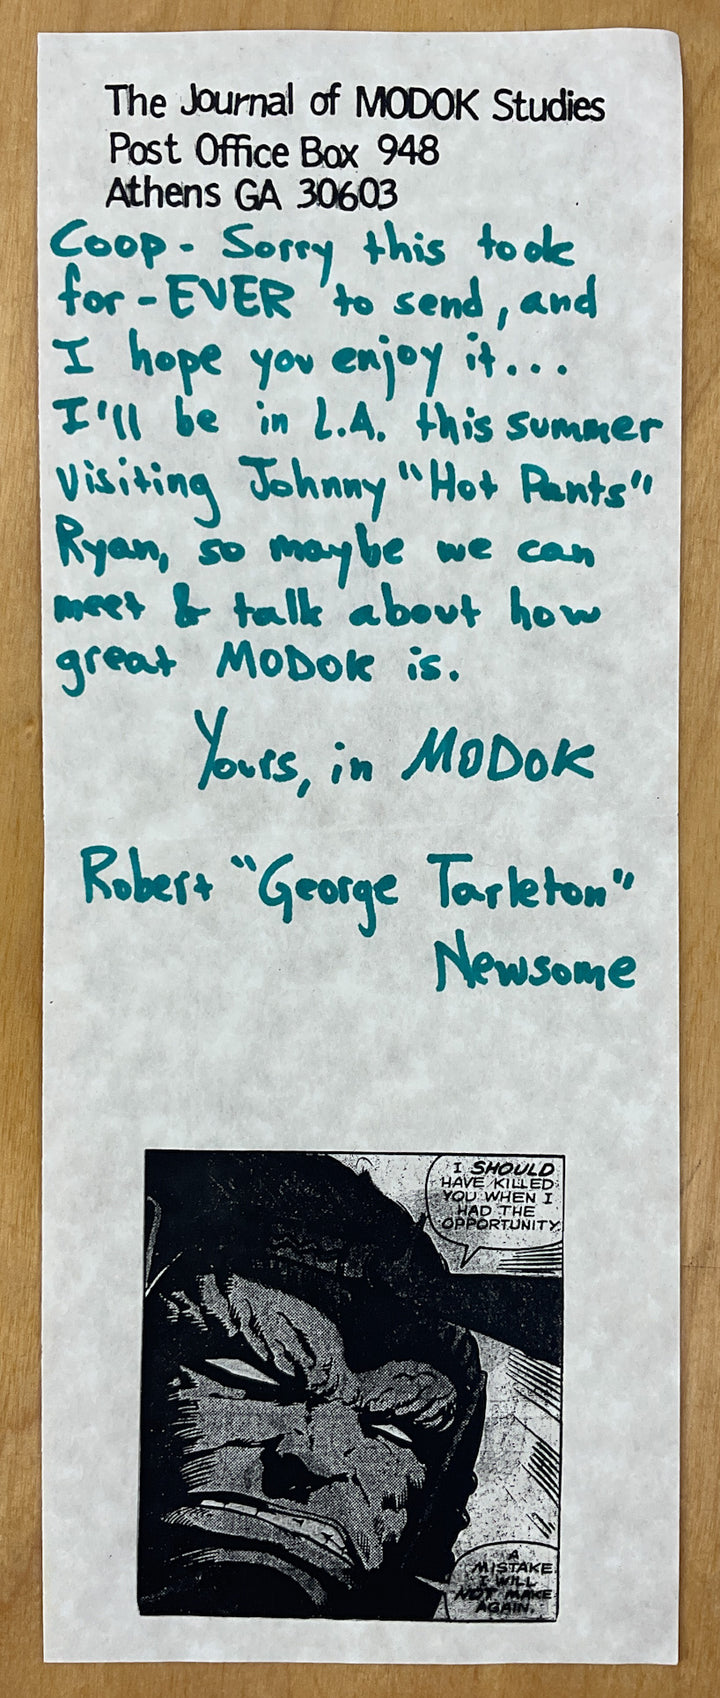 The Journal of MODOK Studies
Post Office Box 948
Athens GA 30603
Coop - Sorry this took
for-EVER to send, and
I hope you enjoy it...
I'll be in L.A. this summer
visiting Johnny "Hot Pants"
Ryan, so maybe we can
meet & talk about how
great MODOK is.
Yours, in MODOK
Robert "George Tarleton"
Newsome
I SHOULD
HAVE KILLED
YOU WHEN I
HAD THE
OPPORTUNITY
A
MISTAKE
I WILL
NOT MAKE
AGAIN.